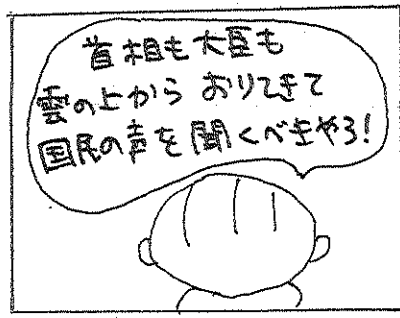 首相も大臣も
雲の上から おりてきて
国民の声を聞くべきやろ!